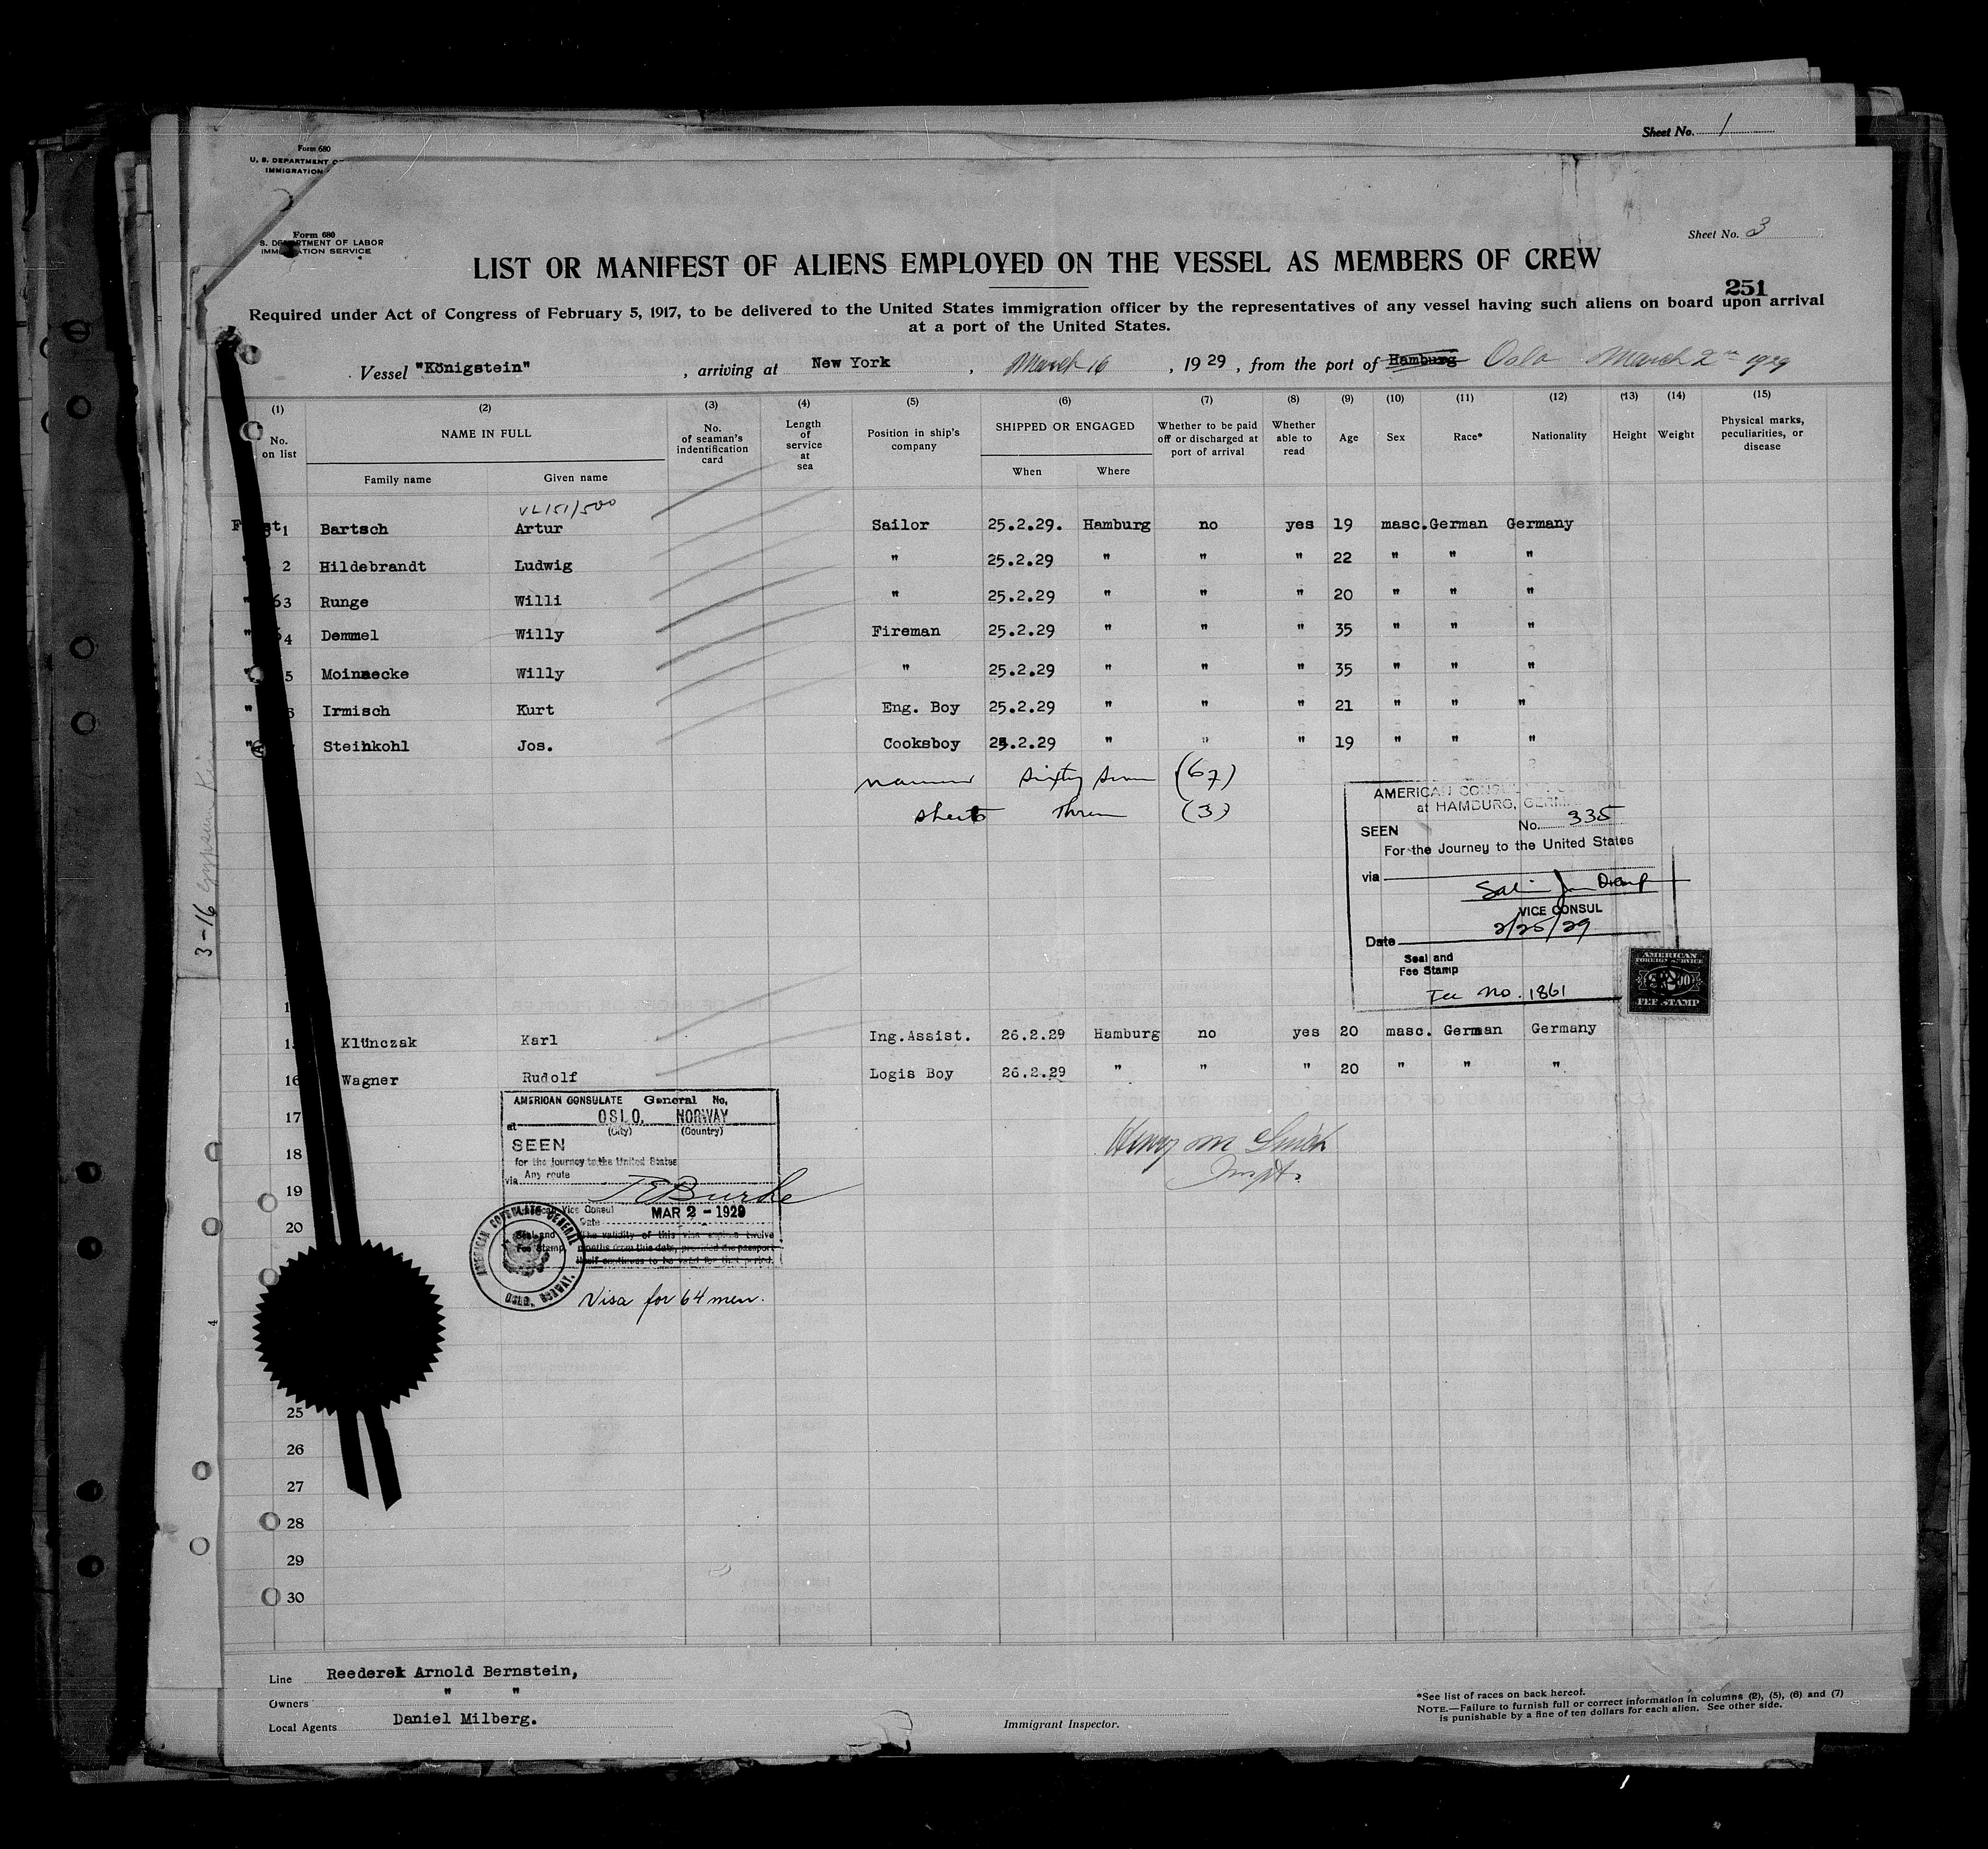 Sheet No. 1
Form 680
U. S. DEPARTMENT OF
IMMIGRATION
Form 680
S. DEPARTMENT OF LABOR
IMMIGRATION SERVICE
Sheet No. 3
LIST OR MANIFEST OF ALIENS EMPLOYED ON THE VESSEL AS MEMBERS OF CREW
251
Required under Act of Congress of February 5, 1917, to be delivered to the United States immigration officer by the representatives of any vessel having such aliens on board upon arrival
at a port of the United States.
Vessel "Königstein" , arriving at New York , March 16 , 1929 , from the port of Hamburg Oslo March 2nd 1929
(1) (2) (3) (4) (5) (6) (7) (8) (9) (10) (11) (12) (13) (14) (15)
No. on list NAME IN FULL Family name Given name No. of seaman's indentification card Length of service at sea Position in ship's company SHIPPED OR ENGAGED When Where Whether to be paid off or discharged at port of arrival Whether able to read Age Sex Race* Nationality Height Weight Physical marks, peculiarities, or disease
VL151/500
1 Bartsch Artur Sailor 25.2.29. Hamburg no yes 19 masc. German Germany
" 2 Hildebrandt Ludwig " 25.2.29 " " " 22 " " "
" 3 Runge Willi " 25.2.29 " " " 20 " " "
" 4 Demmel Willy Fireman 25.2.29 " " " 35 " " "
" 5 Moinnecke Willy " 25.2.29 " " " 35 " " "
" 6 Irmisch Kurt Eng. Boy 25.2.29 " " " 21 " " "
" Steinkohl Jos. Cooksboy 25.2.29 " " " 19 " " "
names sixty seven (67)
sheets three (3)
AMERICAN CONSULATE GENERAL
at HAMBURG, GERMANY
SEEN No. 335
For the Journey to the United States
via
VICE CONSUL
Date 2/25/29
Seal and
Fee Stamp
Fee No. 1861
AMERICAN
FOREIGN SERVICE
FEE STAMP
3-16
15 Klünczak Karl Ing.Assist. 26.2.29 Hamburg no yes 20 masc. German Germany
16 Wagner Rudolf Logis Boy 26.2.29 " " " 20 " " "
AMERICAN CONSULATE General No.
at OSLO, NORWAY
(City) (Country)
SEEN
for the journey to the United States
via Any route
Burke
Vice Consul
Date MAR 2 - 1929
Seal and Fee Stamp
The validity of this visa expires twelve
months from this date, provided the passport
itself continues to be valid for that period.
AMERICAN CONSULATE GENERAL
OSLO, NORWAY.
Visa for 64 men.
Henry M Smith
Inspt.
17
18
19
20
4
25
26
27
28
29
30
Line Reederei Arnold Bernstein,
Owners " "
Local Agents Daniel Milberg.
Immigrant Inspector.
*See list of races on back hereof.
NOTE.—Failure to furnish full or correct information in columns (2), (5), (6) and (7)
is punishable by a fine of ten dollars for each alien. See other side.